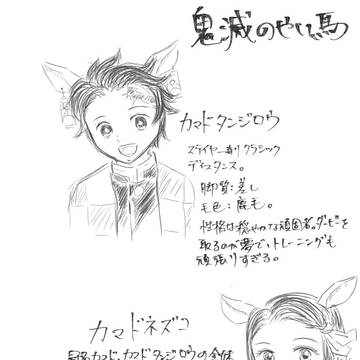 鬼滅のやいば馬
カマドタンジロウ
ステイヤー寄りクラシック
ディスタンス。
脚質:差し
毛色:鹿毛。
性格は穏やかな頑固者。ダービーを
取るのが夢でトレーニングも
頑張りすぎる。
カマドネズコ
カマド、カマドタンジロウの全妹